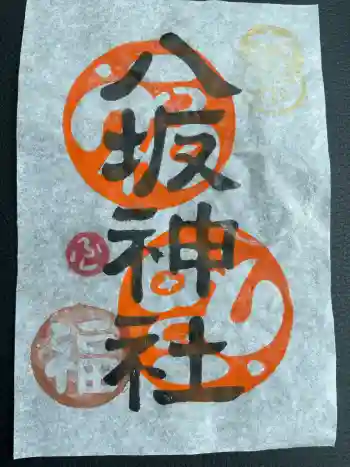 八坂神社
ふ
福